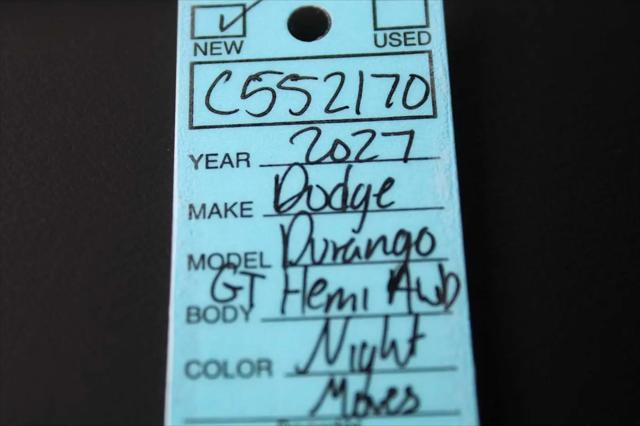 NEW USED
C552170
YEAR 2027
MAKE Dodge
MODEL Durango
BODY GT Hemi Awd
COLOR Night
Moves